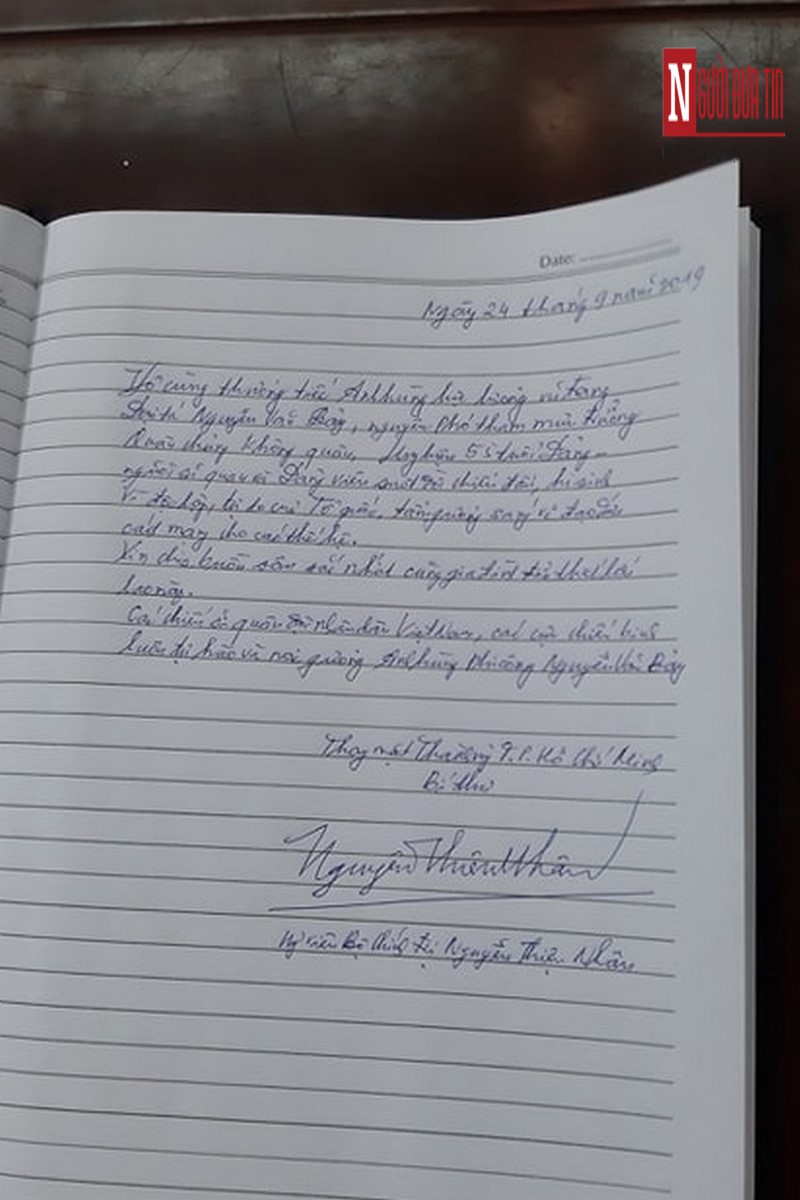 NGƯỜI ĐƯA TIN
Date:
Ngày 24 tháng 9 năm 2019
Vô cùng thương tiếc Anh hùng lực lượng vũ trang
Đại tá Nguyễn Văn Bảy, nguyên Phó tham mưu trưởng
Quân chủng Không quân, 55 tuổi Đảng –
người sĩ quan và Đảng viên suốt đời chiến đấu, hi sinh
Vì độc lập, tự do của Tổ quốc, tấm gương sáng về đạo đức
cách mạng cho các thế hệ.
Xin chia buồn sâu sắc nhất cùng gia đình
Các chiến sĩ quân đội nhân dân Việt Nam, các cựu chiến binh
luôn tự hào và noi gương Anh hùng Phi công Nguyễn Văn Bảy
Thay mặt Thành ủy T.P. Hồ Chí Minh
Bí thư
Nguyễn Thiện Nhân
Ủy viên Bộ Chính trị Nguyễn Thiện Nhân